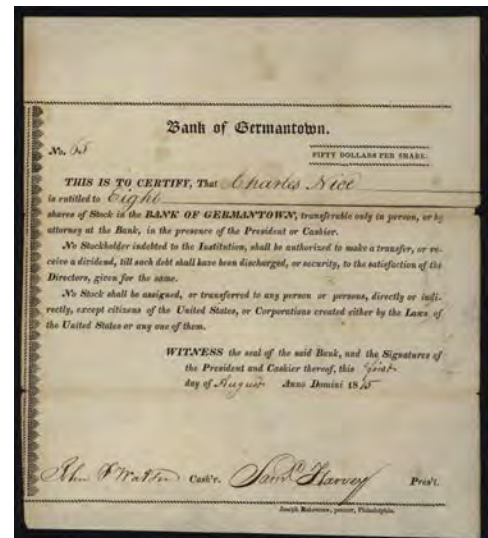 Bank of Germantown.
No. 65
FIFTY DOLLARS PER SHARE.
THIS IS TO CERTIFY, That Charles Nice
is entitled to Eight
shares of Stock in the BANK OF GERMANTOWN, transferable only in person, or by
attorney at the Bank, in the presence of the President or Cashier.
No Stockholder indebted to the Institution, shall be authorized to make a transfer, or re-
ceive a dividend, till such debt shall have been discharged, or security, to the satisfaction of the
Directors, given for the same.
No Stock shall be assigned, or transferred to any person or persons, directly or indi-
rectly, except citizens of the United States, or Corporations created either by the Laws of
the United States or any one of them.
WITNESS the seal of the said Bank, and the Signatures of
the President and Cashier thereof, this first
day of August Anno Domini 1815
John F Watson Cash'r. Saml Harvey Pres't.
Joseph Rakestraw, printer, Philadelphia.